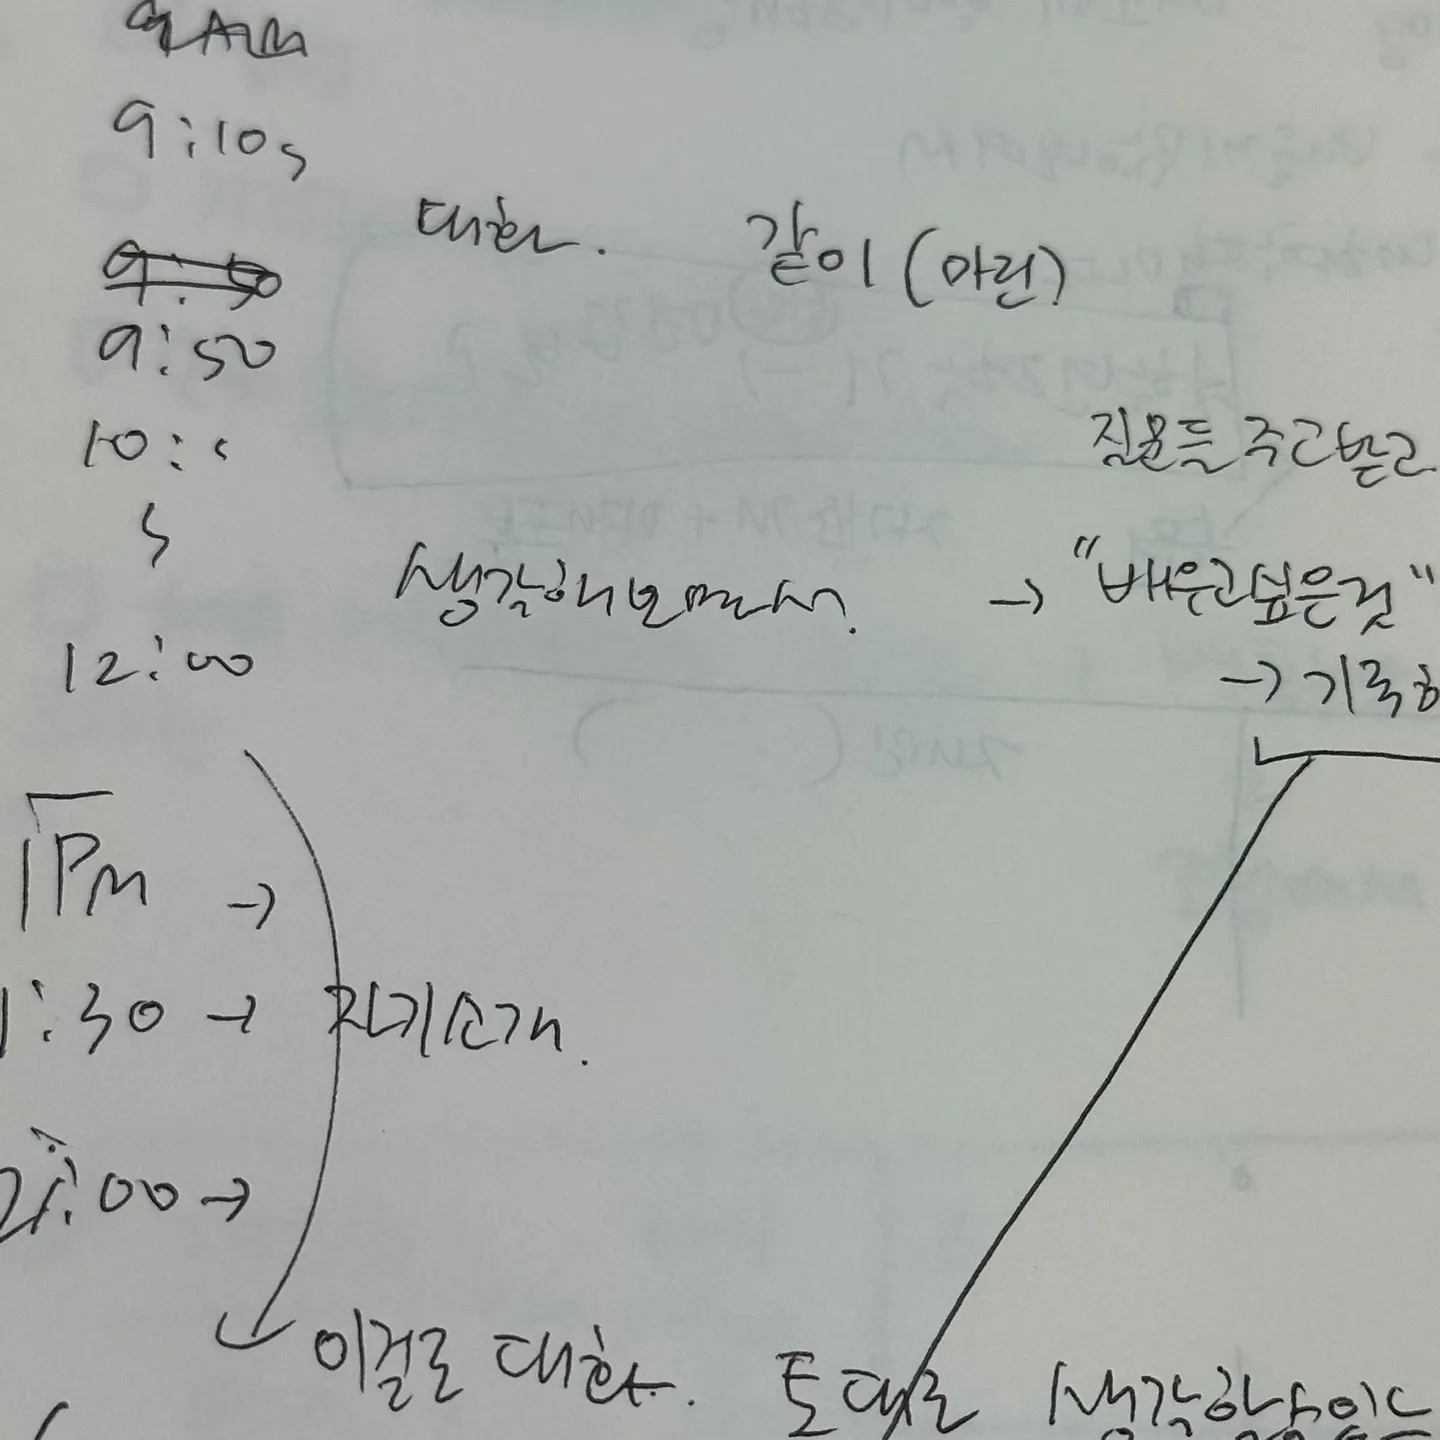 9 AM
9:10
대화. 같이 (마린)
9:50
9:50
10:
질문들 주고받고
생각해보면서. → "배우고싶은것"
12:00
→ 기록
1PM →
1:30 → 자기소개.
2:00 →
이걸로 대화. 토대로 생각할수있는